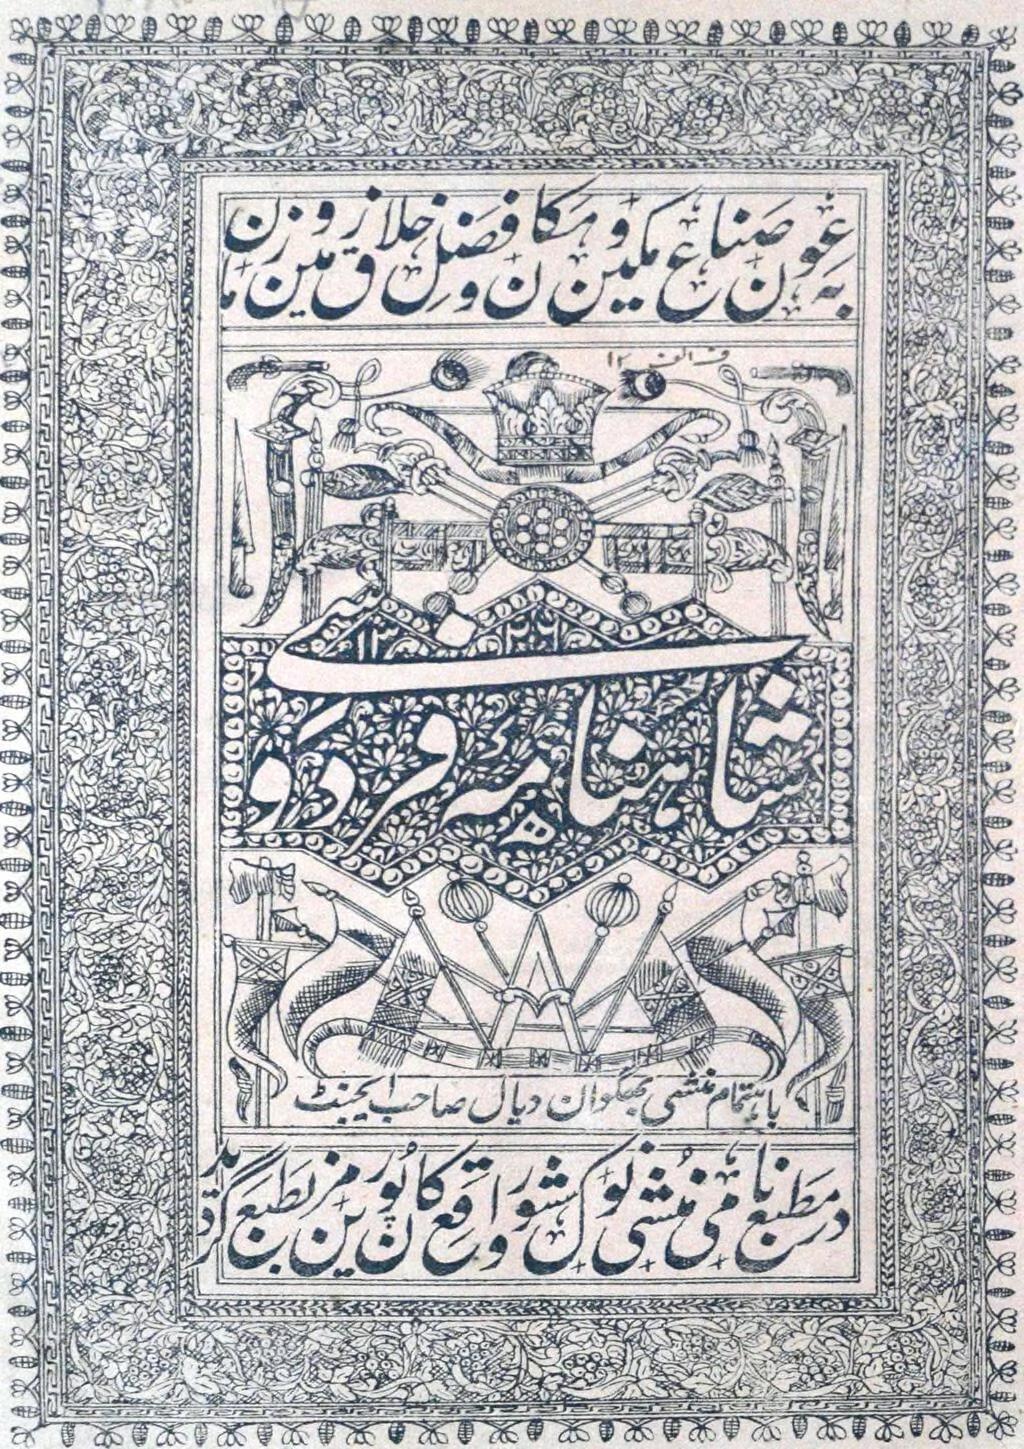 به عون صناع مکین و مکان و فضل خلاق زمین و زمان
شاهنامه فردوسی
۱۳۲۶
باهتمام منشی بھگوان دیال صاحب ایجنٹ
در مطبع نامی منشی نولکشور واقع کانپور مزین بطبع گردید